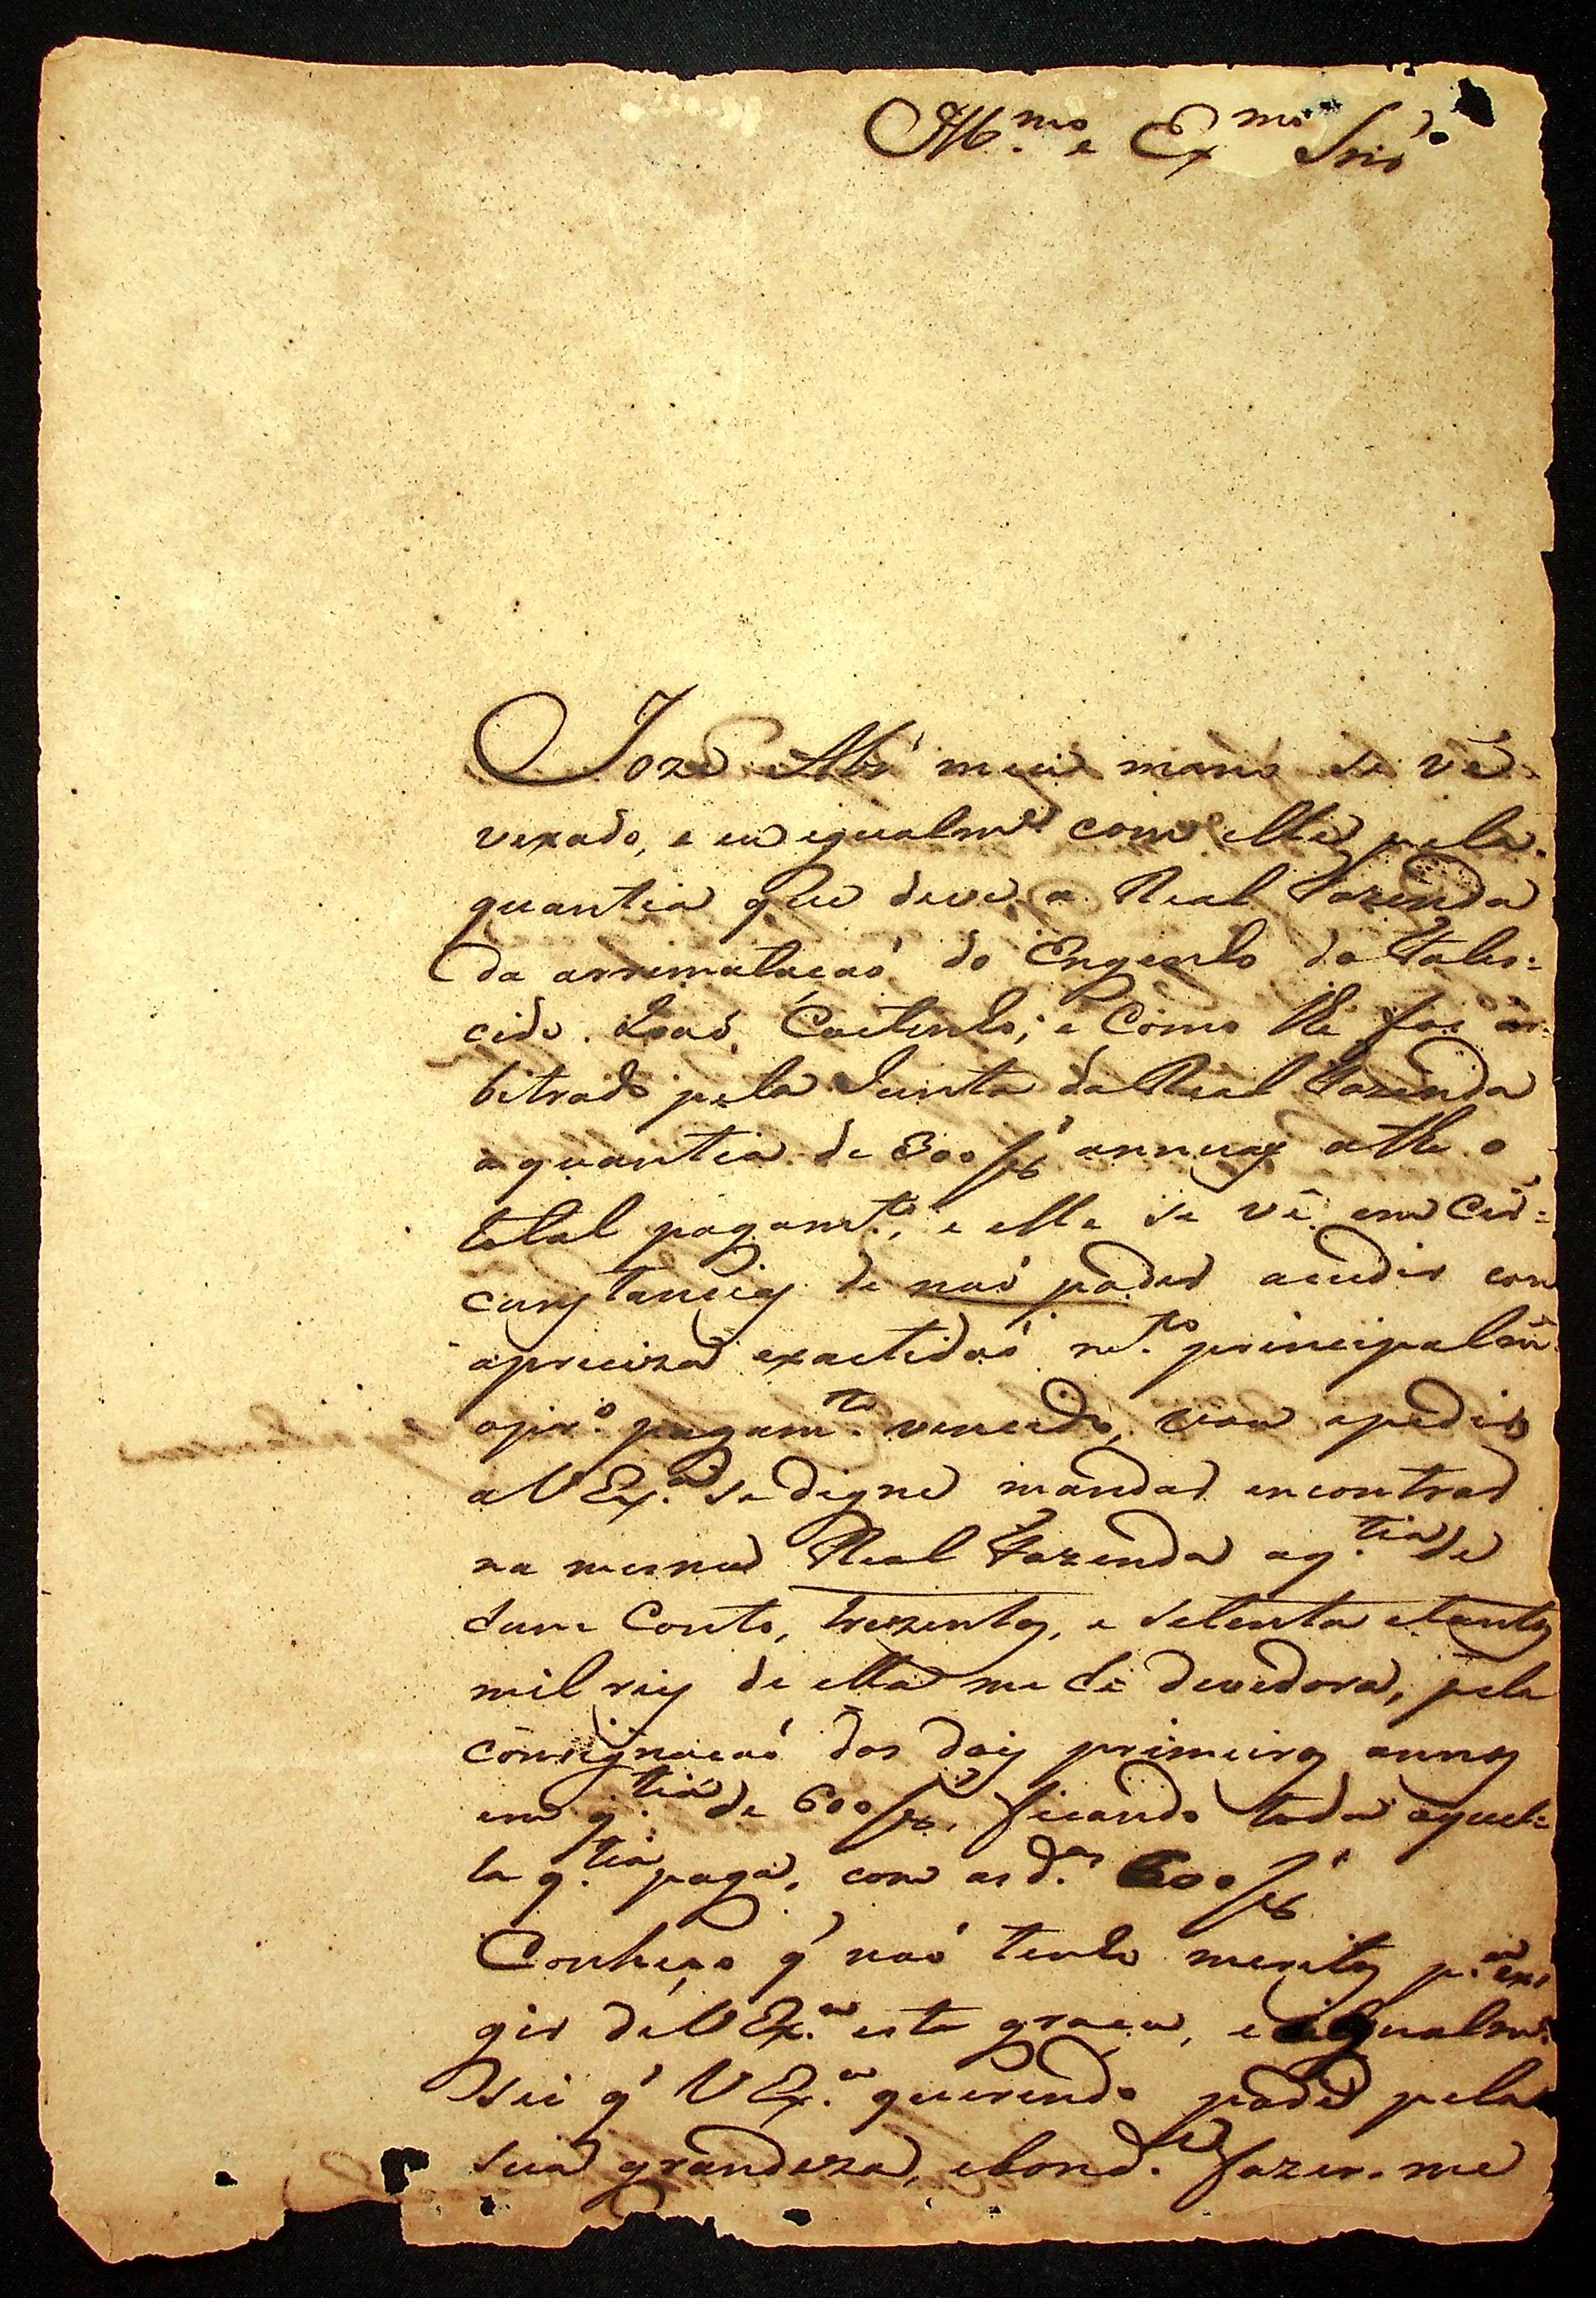 Ill.mo e Ex.mo Snr.
Joze meu mano se vê
vexado, e eu igualm.te com elle pela
quantia que deve a Real Fazenda
da arrematação do Engenho do fales=
cido João Coelinho; e como lhe foi ar=
bitrado pela Junta da Real Fazenda
a quantia de 300$ annuaes athe o
total pagam.to, e elle se vê em Cir=
cunstancias de naõ poder acudir com
apreciza exactidaõ m.to principalm.e
opr.o pagam.to vencido, vou apedir
a V Ex.a se digne mandar encontrar
na mesma Real Fazenda aq.tia de
hum Conto, trezentos, e setenta etantos
mil reis de ella me hé devedora, pela
consignaçaõ dos dois primeiros annos
em q.tia de 600$, ficando toda aquel=
la q.tia paga, com as d.as 600$
Conheço q' naõ tenho meritos p.a exi
gir de V Ex.a esta graça, e igualm.e
sei q' V Ex.a querendo pode pela
sua grandeza, ebond.e fazer-me